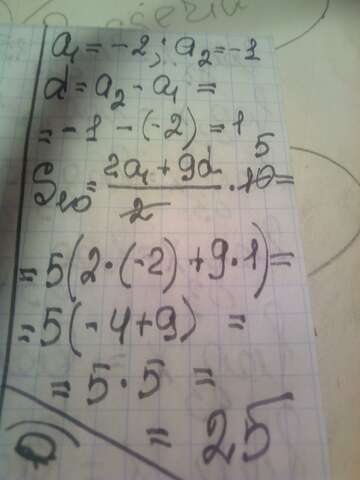 a₁ = -2; a₂ = -1
d = a₂ - a₁ =
= -1 - (-2) = 1
S₁₀ = (2a₁ + 9d)/2 · 10 = 5
= 5(2·(-2) + 9·1) =
= 5(-4+9) =
= 5·5 =
= 25